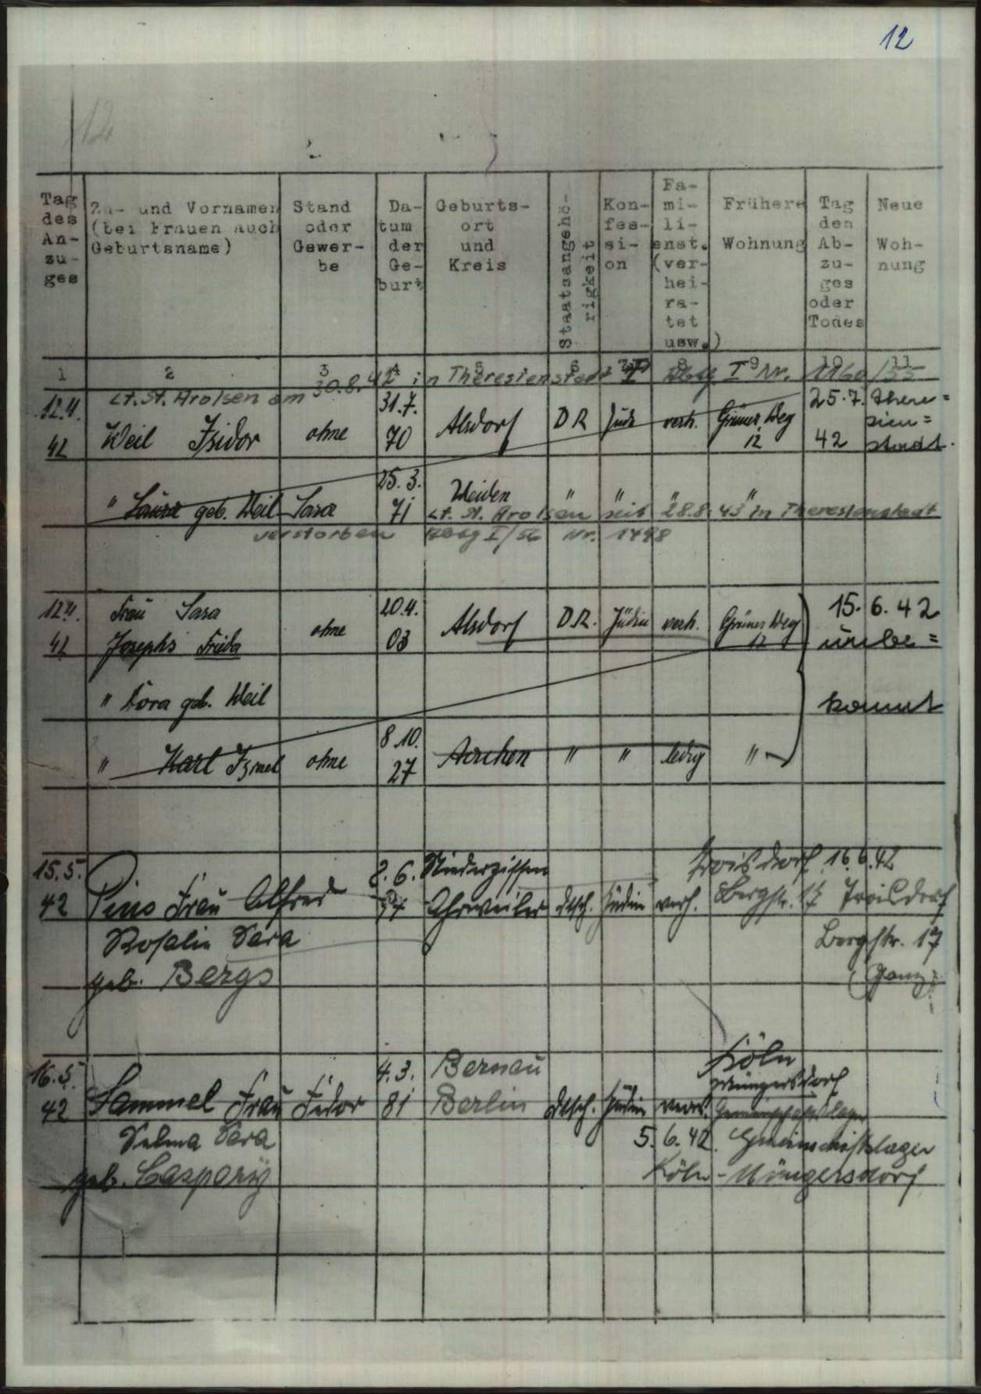 12
12
Tag des An- zu- ges
Zu- und Vornamen (bei Frauen auch Geburtsname)
Stand oder Gewer- be
Da- tum der Ge- burt
Geburts- ort und Kreis
Staatsangehö- rigkeit
Kon- fes- si- on
Fa- mi- li- enst. (ver- hei- ra- tet usw.)
Frühere Wohnung
Tag den Ab- zu- ges oder Todes
Neue Woh- nung
1 2 3 4 5 6 7 8 9 10 11
Lt. St. Arolsen am 30.8.42 in Theresienstadt I Nr. 1160/55
12.11. 41 Weil Isidor ohne 31.7. 70 Alsdorf DR Jude verh. Grüner Weg 12 25.7. 42 There= sien= stadt.
" Laura geb. Weil Sara 25.3. 71 Weiden " " " "
Lt. St. Arolsen seit 28.8.43 in Theresienstadt
verstorben I/56 Nr. 1498
12.11. 41 Frau Sara
Josephs Frieda ohne 20.4. 03 Alsdorf D.R. Jüdin verh. Grüner Weg 12 15.6.42 unbe=
" Dora geb. Weil kannt
" Karl Israel ohne 8.10. 27 Aachen " " ledig "
15.5. 42 Pins Frau Alfred 2.6. Niederzissen Ahrweiler dtsch. Jüdin verh. Troisdorf Bergstr. 17 16.6.42 Troisdorf
Rosalie Sara Bergstr. 17
geb. Bergs
16.5. 42 Sammel Frau Isidor 4.3. 81 Bernau Berlin dtsch. Jüdin Köln Müngersdorf Gemeinschaftslager
Selma Sara 5.6.42. Gemeinschaftslager
geb. Caspary Köln-Müngersdorf